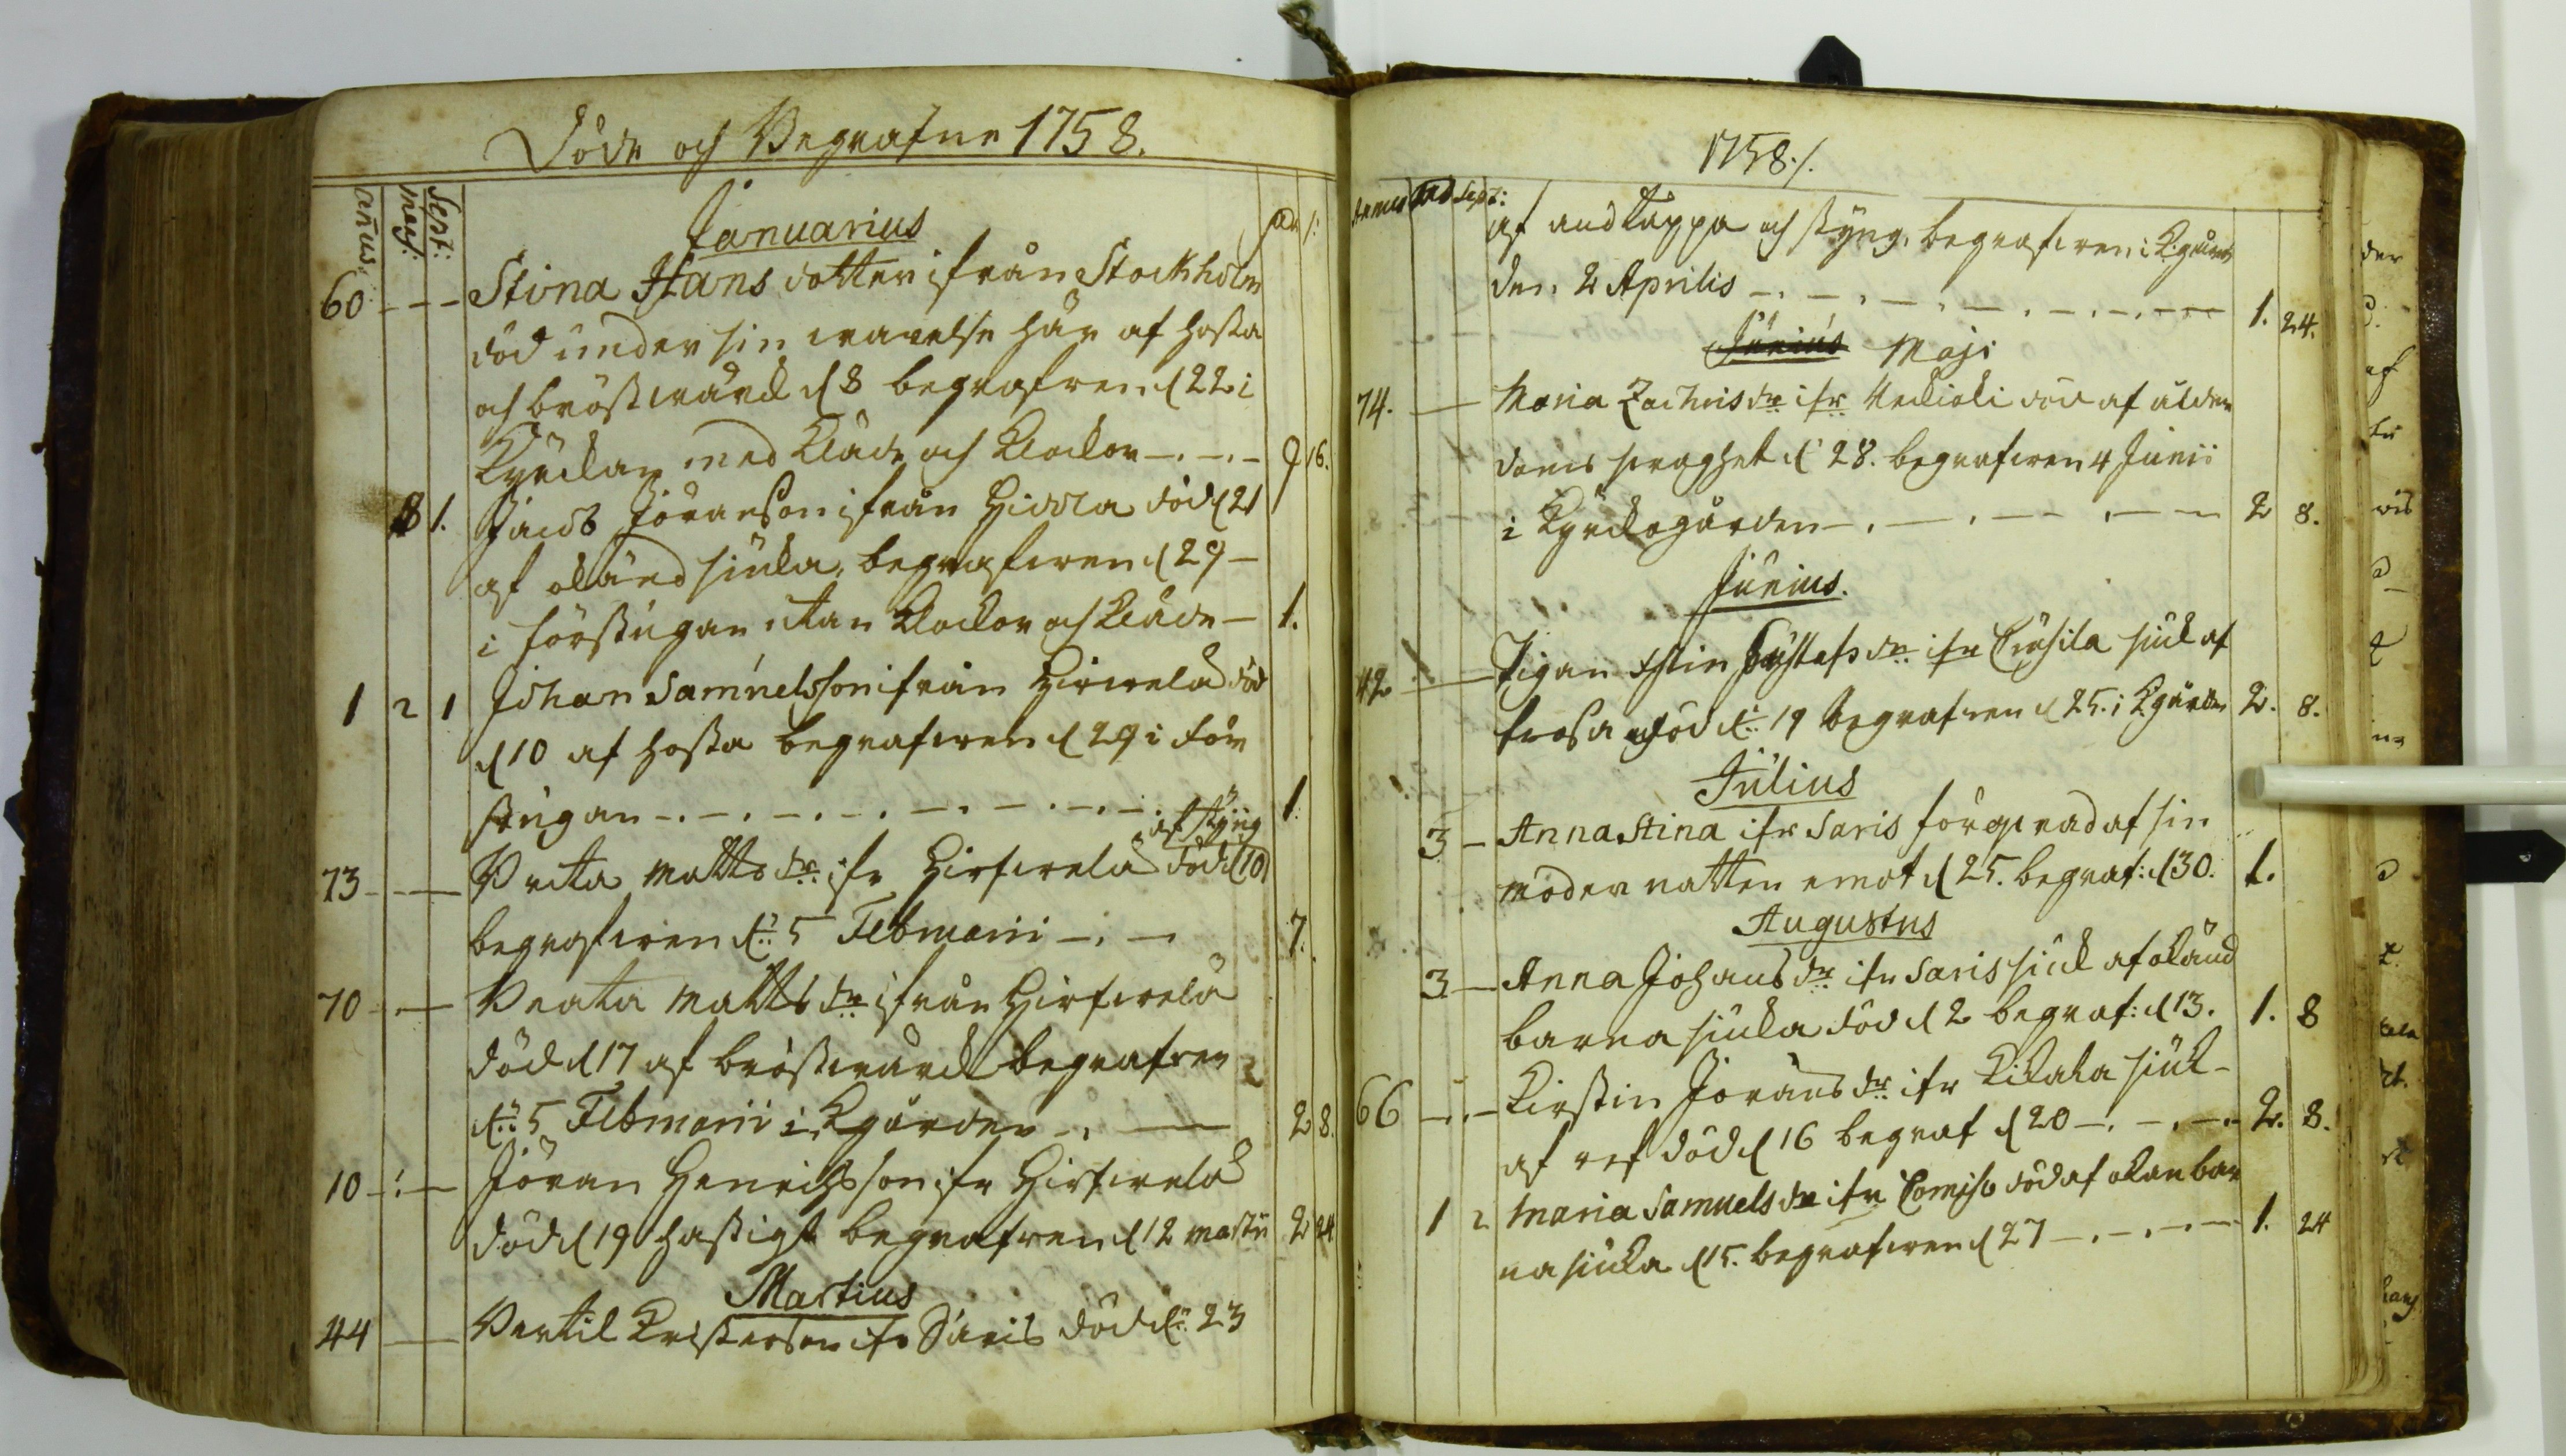 Döde och Begrafne 1758.
añus. mens: Sept:
Januarius
60 - - - Stina Hans dotter ifrån Stockholm
död under sin warelse här af hosta
och bröstwärck d 8 begrafwen d 22 i
Kyrckan med Kläde och Klockor - . - . - 9 16.
8 1. Jacob Jöranson ifrån död d 21
af okänd siuka, begrafwen d 29 -
i förstugan utan Klockor och Kläde - 1.
1 2 1 Johan Samuelsson ifrån Hirwelä död
d 10 af hosta begrafwen d 29 i för
stugan - . - . - . - . - . - . - . - 1.
af styng
73 - - - Brita Matts dr ifr Hirfwelä död d 10
begrafwen d: 5 Februarii - . - 7.
70 - - Beata Matts dr ifrån Hirfwelä
död d 17 af bröstwärck begrafwen
d: 5 Februarii i Kgården - . - 2 8.
10 - : - Jöran Henrichsson ifr Hirfwelä
död d 19 hastigt begrafwen d 12 Martii 2 24
Martius
44 - Bertil ifr Saris död d: 23
1758./.
Annus Sept:
af andtäppa och styng, begrafwen i Kgården
den 2 Aprilis - . - . - . - . - . - 1. 24.
Junius Maji
74. - Maria Zachris dr ifr död af ålder
doms swaghet d 28. begrafwen 4 Junii
i Kyrckogården - . - . - . - 2 8.
Junius.
42 - Pigan Gustafs dr ifr siuk af
död d: 19 begrafwen d 25. i Kgården 2. 8.
Julius
3 - Anna Stina ifr Saris förqwäfd af sin
moder natten emot d 25. begraf: d 30. 1.
Augustus
3 - Anna Johans dr ifr Saris siuk af okänd
barnasiuka död d 2 begraf: d 13. 1. 8
66 - . - Kirstin Jörans dr ifr siuk -
af ref död d 16 begraf d 20 - . - . - 2. 8.
1 2 Maria Samuels dr ifr död af okän bar
nasiuka d 15. begrafwen d 27 - . - . - 1. 24